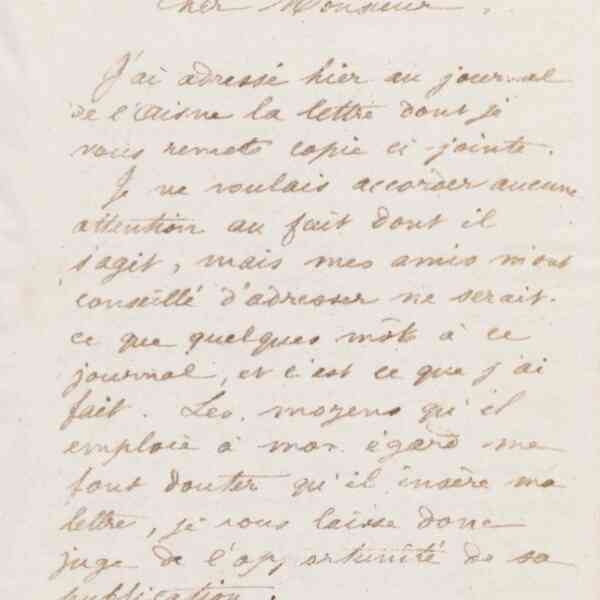 Cher Monsieur,
J'ai adressé hier au journal
de l'Aisne la lettre dont je
vous remets copie ci-jointe.
Je ne voulais accorder aucune
attention au fait dont il
s'agit, mais mes amis m'ont
conseillé d'adresser ne serait-
ce que quelques mots à ce
journal, et c'est ce que j'ai
fait. Les moyens qu'il
emploie à mon égard me
font douter qu'il insère ma
lettre, je vous laisse donc
juge de l'opportunité de sa
publication.